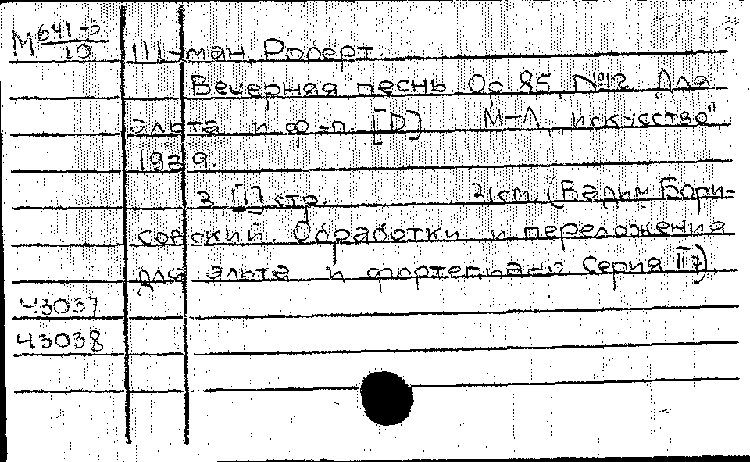 М 641-2/10
Ш-ман, Роберт.
Вечерная песнь Op. 85, №12 Для
альта и ф-п. [D] М-Л, искусство"
1939.
3 [1] стр. (Вадим Бори-
совский. Обработки и переложения
для альта и фортепиано Серия II 7)
43037
43038